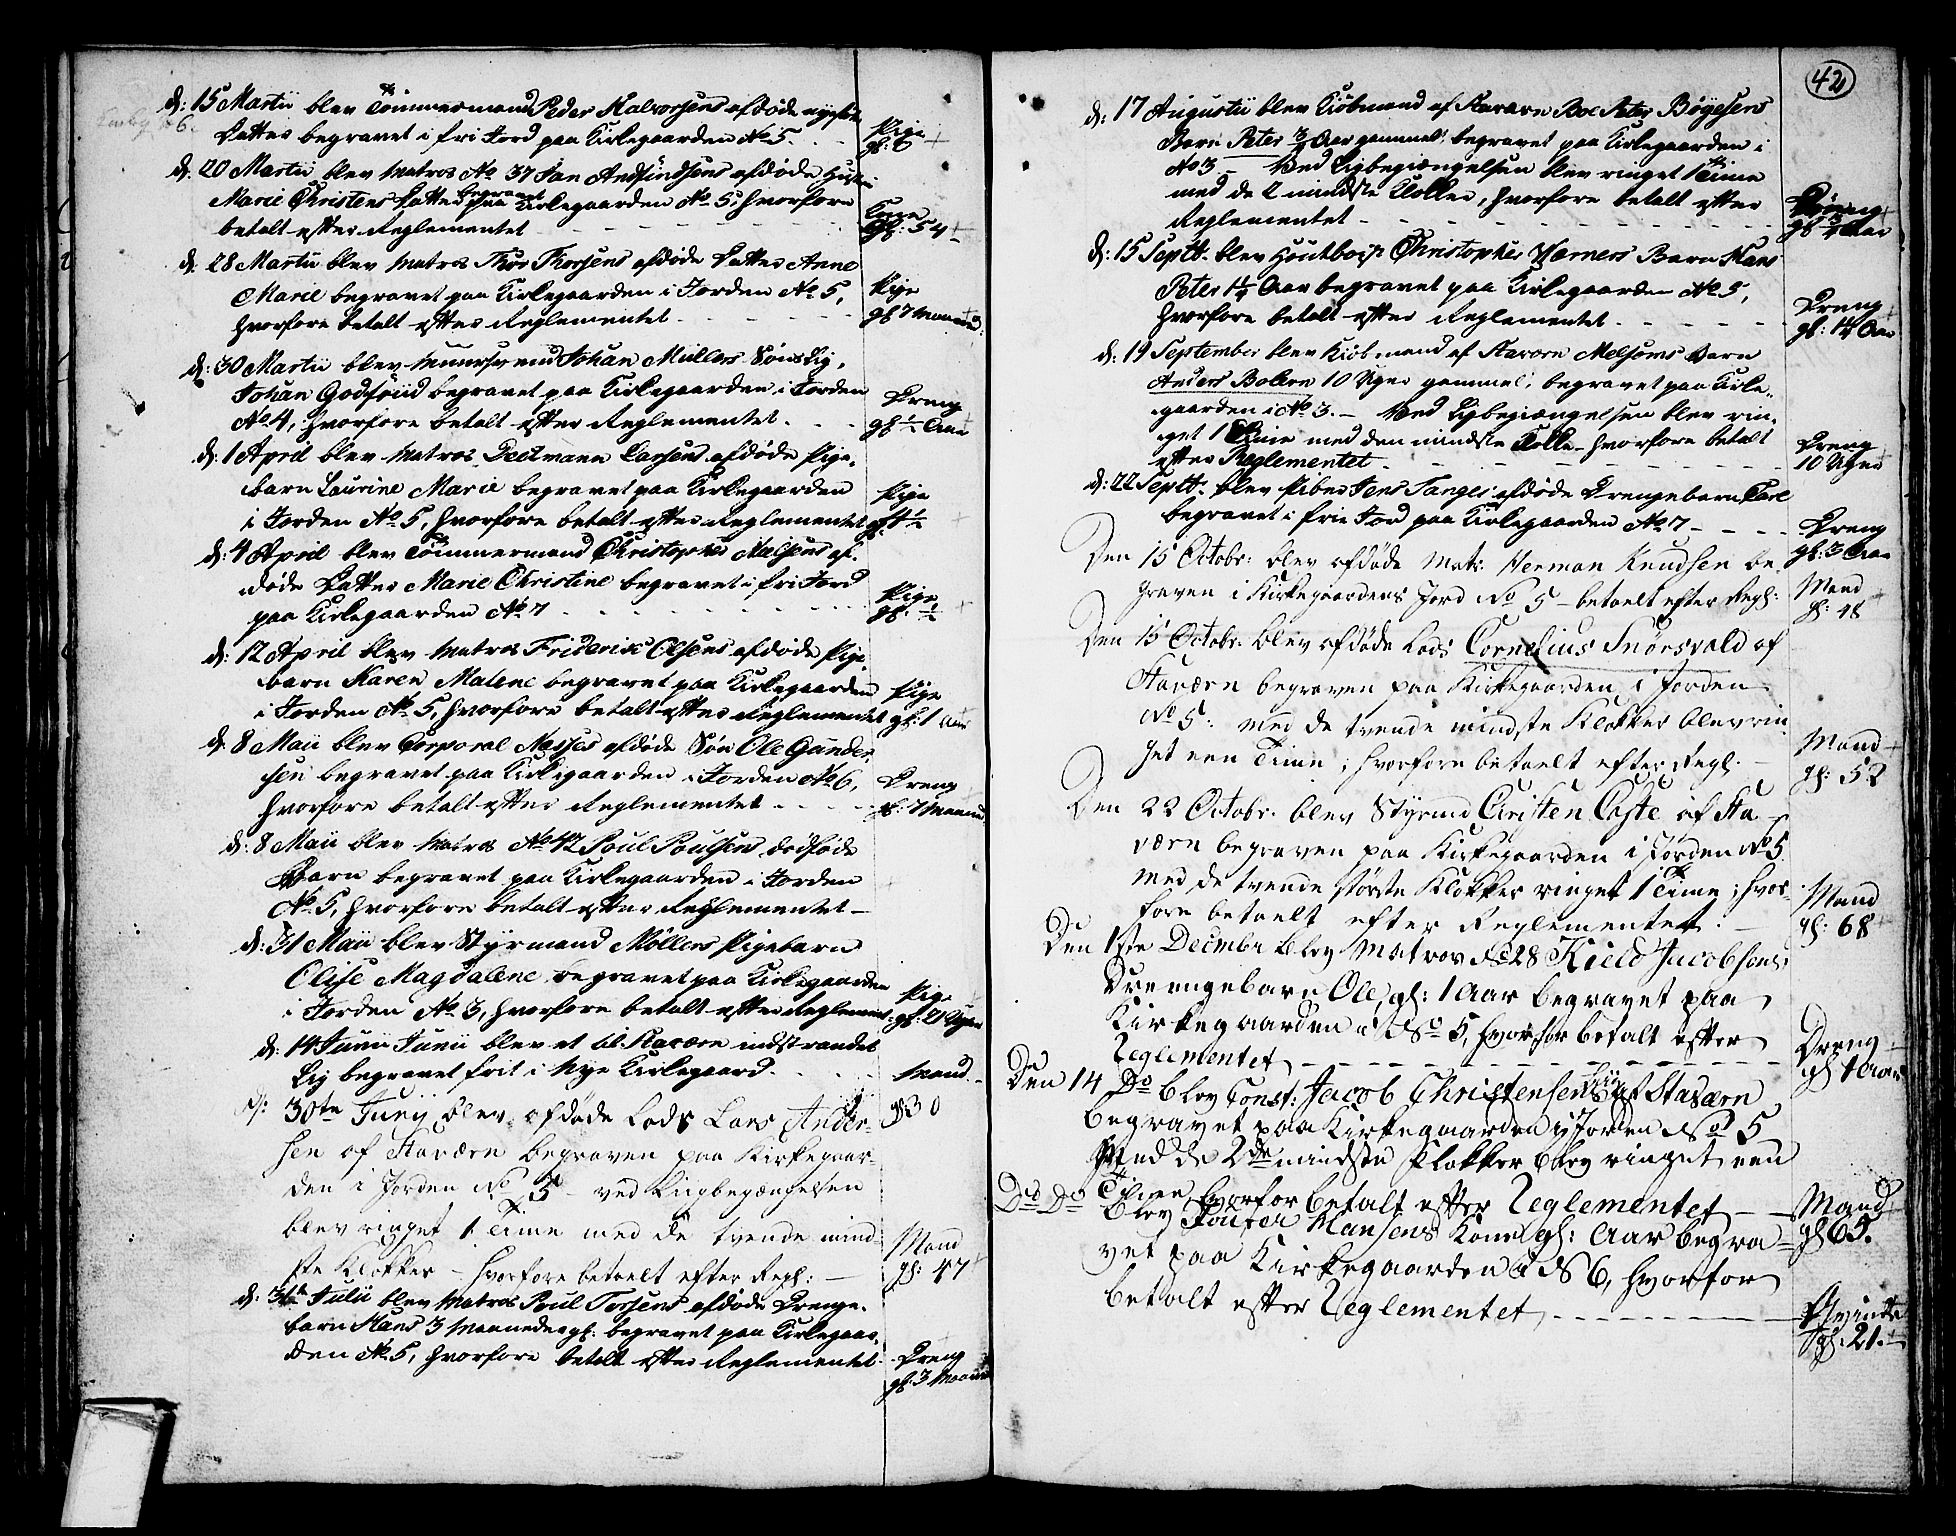 d: 15 Martii blev Tömmermand Peder Halvorsens afdöde nyefödte
Datter begravet i fri Jord paa Kirkegaarden No 5. Pige
d: 20 Martii blev Matros No 37 Jan Andfindsens afdöde Hustru
Marie Christens Datter begravet paa Kirkegaarden No 5, hvorfore
betalt efter Reglementet Kone gl: 54
d: 28 Martii blev Matros Thor Thorsens afdöde Datter Anne
Marie begravet paa Kirkegaarden i Jorden No 5, Pige
hvorfore betalt efter Reglementet gl 7 Maaned:
d: 30 Martii blev Johan Müllers Söns Lig,
Johan Godfriid begravet paa Kirkegaarden i Jorden Dreng
No 4, hvorfore betalt efter Reglementet. gl ½ Aar
d: 1 April blev Matros Deetmann Larsens afdöde Pige-
barn Laurine Marie begravet paa Kirkegaarden Pige
i Jorden No 5, hvorfore betalt efter Reglementet
d: 4 April blev Tömmermand Christopher Nielsens af-
döde Datter Marie Christine begravet i fri Jord Pige
paa Kirkegaarden No 7 gl: ½
d: 12 April blev Matros Friderik Olsens afdöde Pige-
barn Karen Malene begravet paa Kirkegaarden Pige
i Jorden No 5, hvorfore betalt efter Reglementet gl: 1 Aar
d: 8 Maii blev Corporal Nesses afdöde Sön Ole Gunder-
sen begravet paa Kirkegaarden i Jorden No 6, Dreng
hvorfore betalt efter Reglementet gl: 7 Maaned:
d: 8 Maii blev Matros No 42 Poul Poulsens dödföde
Barn begravet paa Kirkegaarden i Jorden
No 5, hvorfore betalt efter Reglementet
d: 31 Maii blev Styrmand Møllers Pigebarn
Olise Magdalene begravet paa Kirkegaarden Pige
i Jorden No 3, hvorfore betalt efter Reglement: gl: 21 Uger
d: 14 Junii Junii blev et til Staværn indstrandet
Lig begravet frit i Nye Kirkegaard. Mand
d: 30te Junij blev afdöde Lods Lars Ander- gl 30
sen af Staværn begraven paa Kirkegaar-
den i Jorden No 5 – ved Liigbegængelsen
blev ringet 1 Time med de tvende mind-
ste Klokker – hvorfore betaelt efter Regl: Mand gl: 47
d: 31te Julii blev Matros Poul Torsens afdöde Drenge-
barn Hans 3 Maaneder gl: begravet paa Kirkegaar-
den No 5, hvorfore betalt efter Reglementet. Dreng gl: 3 Maaned
42
d: 17 Augustii blev Kiöbmand af Staværn Boe Peter Böyesens
Barn Peter ¾ Aar gammel, begravet paa Kirkegaarden i
No 3 – Ved Ligbegiængelsen blev ringet 1 Time
med de 2 mindste Klokker, hvorfore betalt efter Dreng
Reglementet gl ¾ Aar
d: 15 Septb: blev Houtboist Christopher Værners Barn Hans
Peter 1¼ Aar begravet paa Kirkegaarden No 5, Dreng
hvorfore betalt efter Reglementet gl: 1¼ Aar
d: 19 September blev Kiöbmand af Stavern Melsoms Barn
Anders Bolern 10 Uger gammel, begravet paa Kirke-
gaarden i No 3. – Ved Ligbegiængelsen blev rin-
get 1 Time med den mindste Klokke, hvorfore betalt Dreng
efter Reglementet 10 Uger
d: 22 Septb: blev Piber Jens Tanges afdöde Drengebarn Carl
begravet i frie Jord paa Kirkegaarden No 7 Dreng gl: 3 Aar
Den 15 Octobr: blev afdöde Matr: Herman Knudsen be-
graven i Kirkegaardens Jord No 5 – betaelt efter Regl: Mand gl: 48
Den 15 Octobr: blev afdöde Lods Cornelius Snörsvald af
Staværn begraven paa Kirkegaarden i Jorden
No 5: med de tvende mindste Klokker blev rin-
get een Time; hvorfore betaelt efter Regl. Mand gl: 52
Den 22 Octobr: blev Styrmd Christen Coste af Sta-
værn begraven paa Kirkegaarden i Jorden No 5
med de tvende störste Klokker ringet 1 Time; hvor-
fore betaelt efter Reglementet. Mand gl: 68
Den 1ste Decembr blev Matros No 28 Kield Jacobsens
Drengebarn Ole, gl: 1 Aar begravet paa
Kirkegaarden i No 5, hvorfor betalt efter Dreng
Reglementet gl 1 Aar
Den 14 Do blev Const: Jacob Christensen af Stavern
begravet paa Kirkegaarden i Jorden No 5
Med de 2de mindste Klokker blev ringet een
Time hvorfor betalt efter Reglementet Mand gl 65.
Do Do blev Hansens Kone gl: Aar begra-
vet paa Kirkegaarden i No 6, hvorfor
betalt efter Reglementet Qvinde gl: 21.